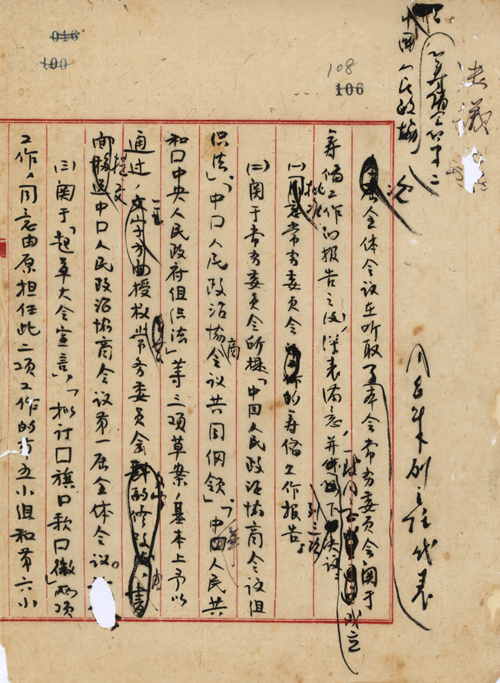 决议
中国人民政协
筹备会第二次
全体会议在听取了本会常务委员会关于
筹备工作的报告之后,深表满意,并
(一)批准常务委员会的筹备工作报告。
(二)关于常务委员会所提「中国人民政治协商会议组
织法」、「中口人民政治协商会议共同纲领」、「中华人民共
和口中央人民政府组织法」等三项草案,基本上予以
通过,授权常务委员会
提交中口人民政治协商会议第一届全体会议。
(三)关于「起草大会宣言」、「拟订口旗口歌口徽」两项
工作,同意由原担任此二项工作的第五小组和第六小
016
100
108
106